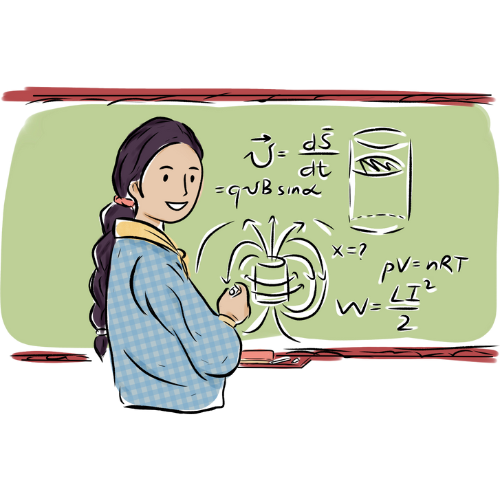 v⃗ = ds⃗/dt
= qvB sinα
x=?
pV=nRT
W = LI²/2